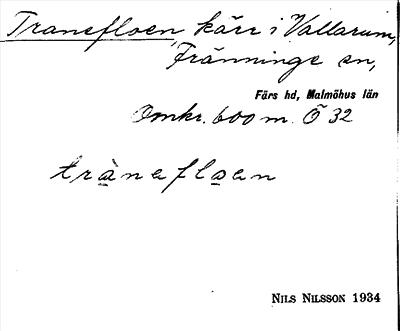 Tranefloen, kärr i Vallarum,
Fränninge sn,
Färs hd, Malmöhus län
Omkr. 600 m. Ö 32
tràneflo̱en
NILS NILSSON 1934